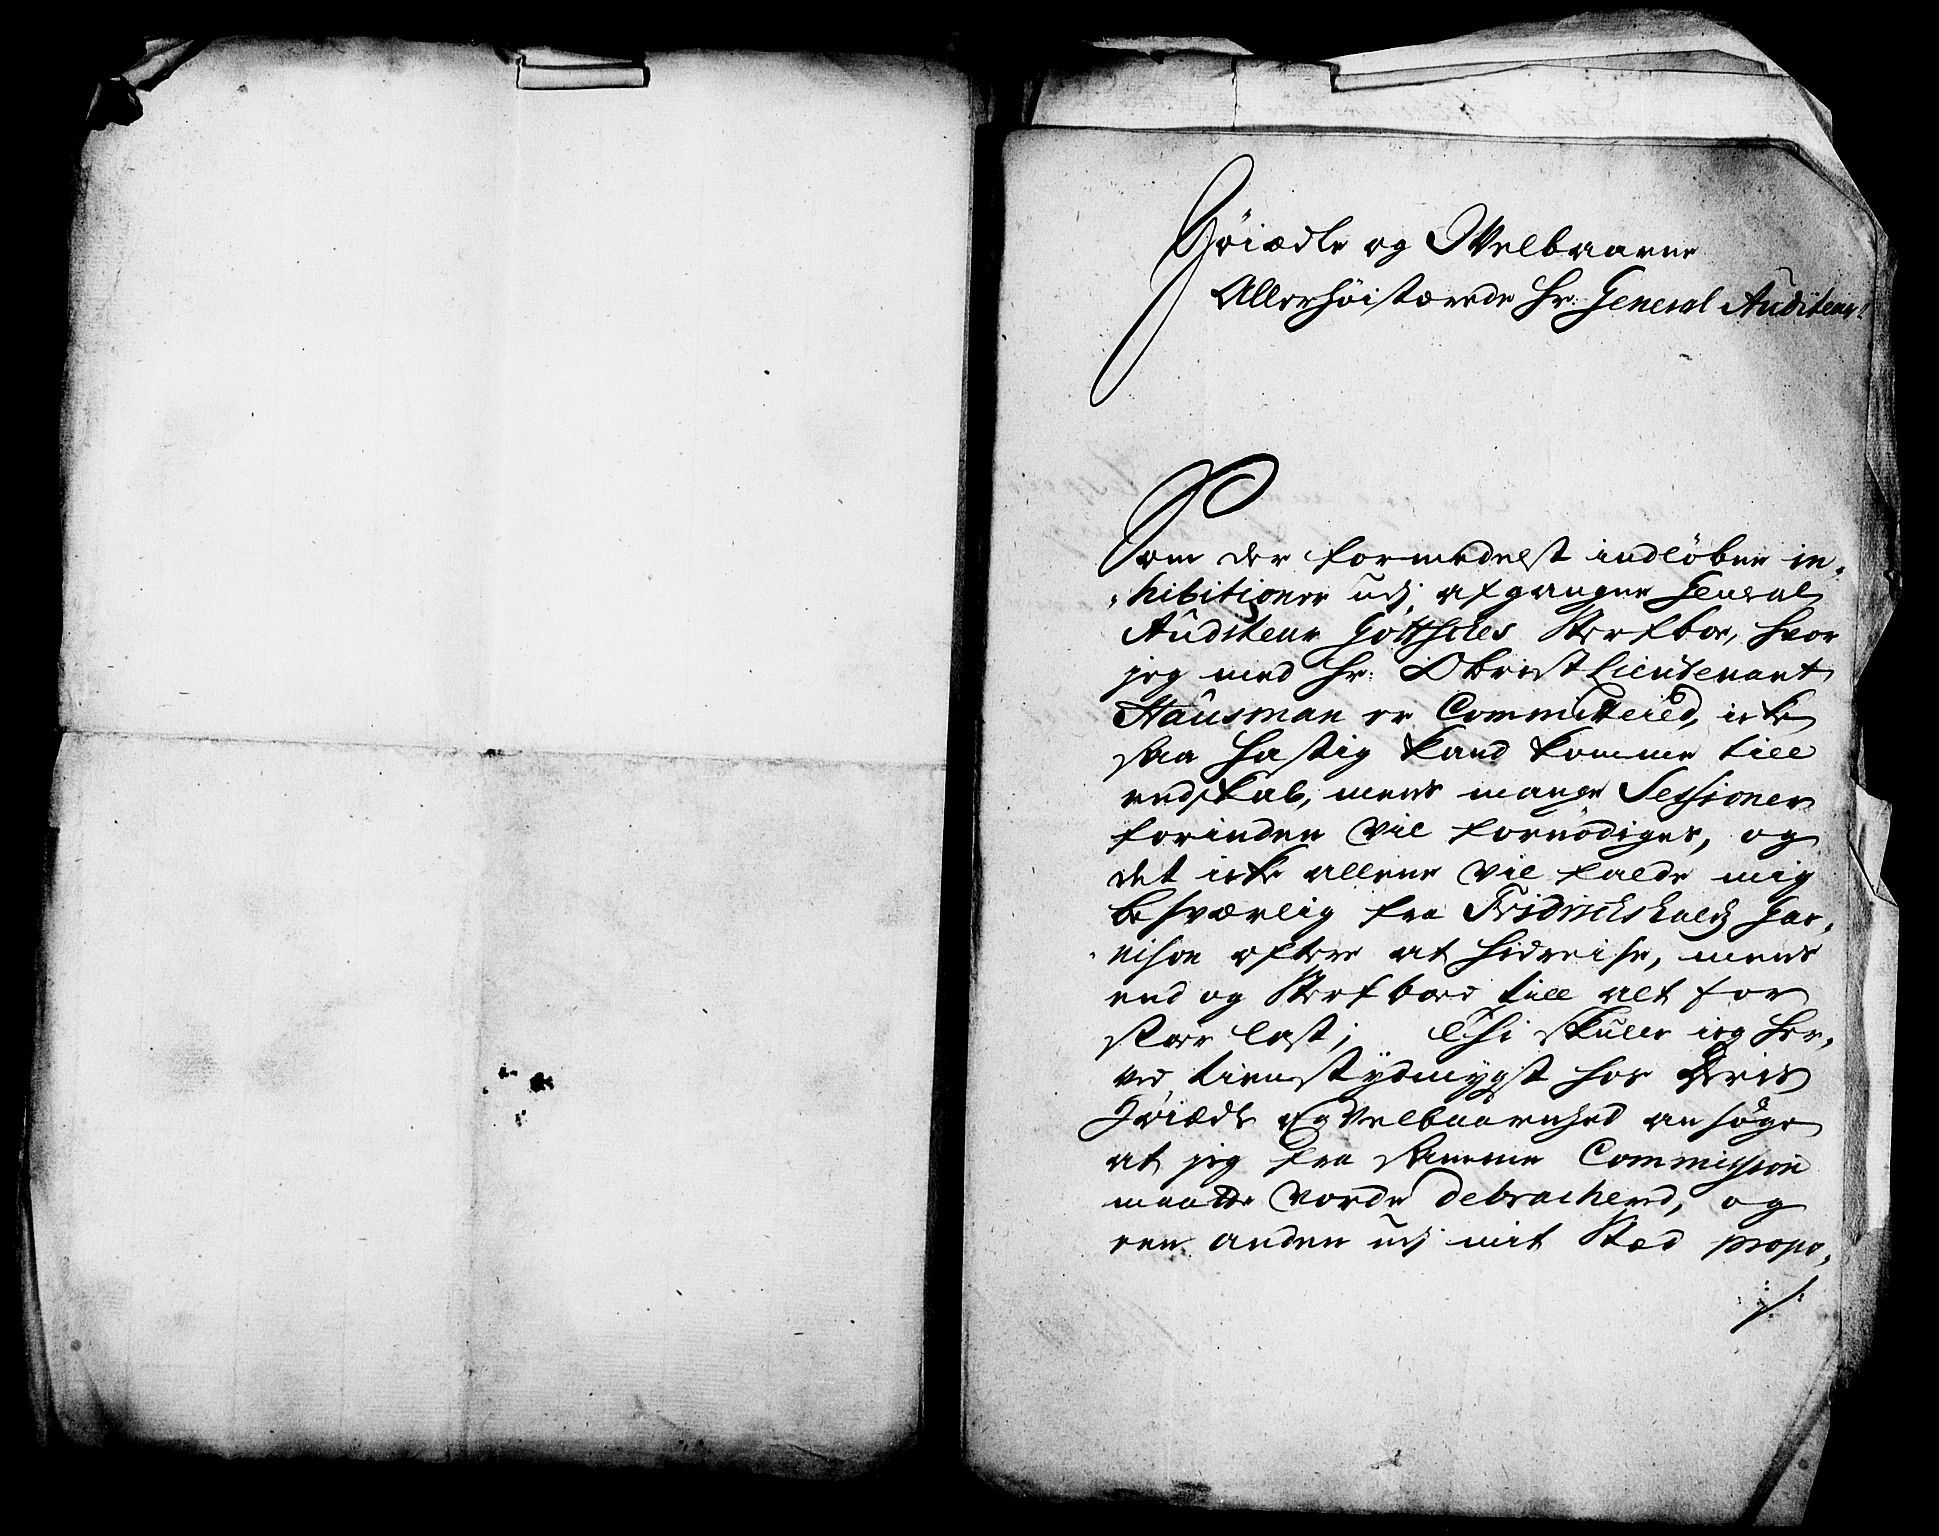 Høiædle og Welbaarne
Allerhøistærede Hr: General Auditeur!
Som der formedelst indløbne in-
hibitioner udj afgangne General
Auditeur Gottscheds Sterfboe, hvor
jeg med Hr: Obrist Lieutenant
Hausman er Committered, icke
saa hastig kand komme till
endskab, mens mange Sessioner
forinden vil fornødiges, og
det icke allene vil falde mig
besværlig fra Fridrichshalds Gar-
nison oftere at hidreise, mens
end og Sterfboed till alt for
stor last; Thi skulle ieg her-
ved tienstydmygst hos Deris
Høiædle og Velbaarenhed ansøge
at jeg fra samme Commission
maatte vorde debracherd, og
een anden udj mit Stæd propo-